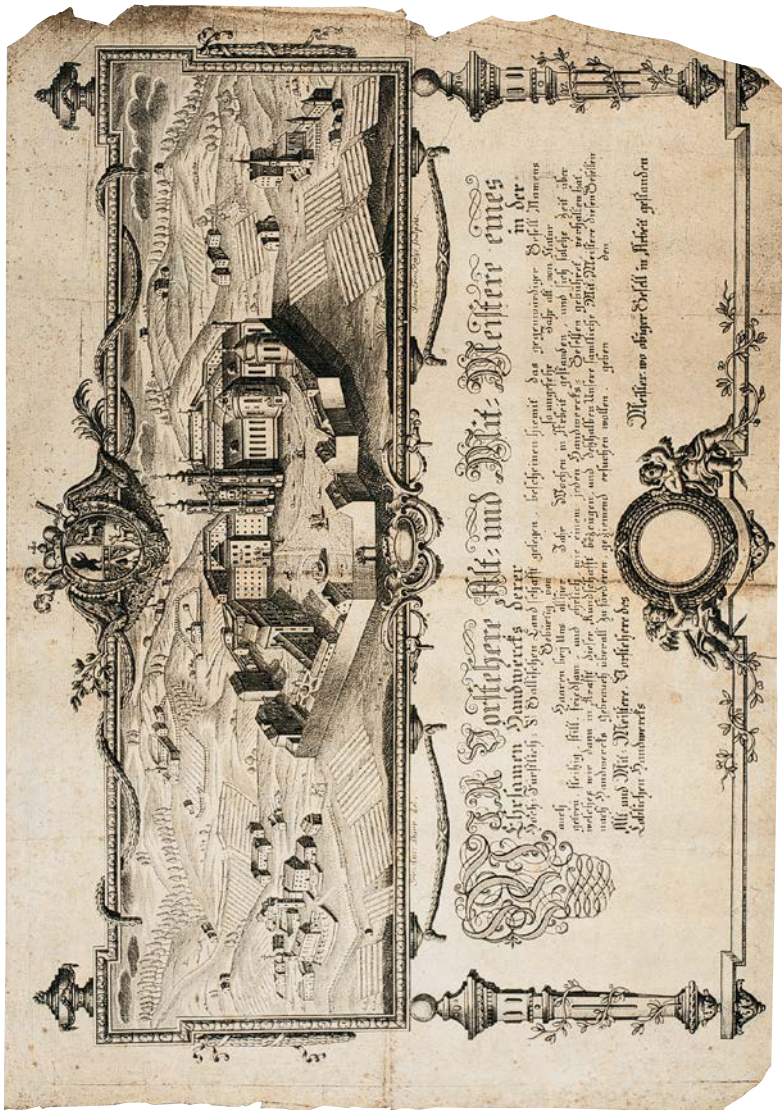 WIR Vorstehere Alt- und Mit-Meistere eines
Ehrsamen Handwercks derer in der
Hoch-Fürstlich: St Gallischen Landschafft gelegen bescheinen hiemit das gegenwärdiger Gesell Namens
Gebürtig von so ungefehr Jahr alt von Statur
auch Haaren bey Uns alhier Jahr Wochen in Arbeit gestanden, und sich solche Zeit über
getreu fleißig, still, friedsam, und ehrlich, wie einem jeden Handwercks-Gesellen gebühret, verhalten hat,
welches wir dann in Krafft dieser Kundschafft bezeugen, und deßhalben Unsere sämtliche Mit-Meistere diesen Gesellen
nach Handwercks gebrauch überall zu förderen geziemend ersuchen wollen. geben den
Alt und Mit-Meistere. Vorstehere des
Löblichen Handwercks
Meister: wo obiger Gesell in Arbeit gestanden